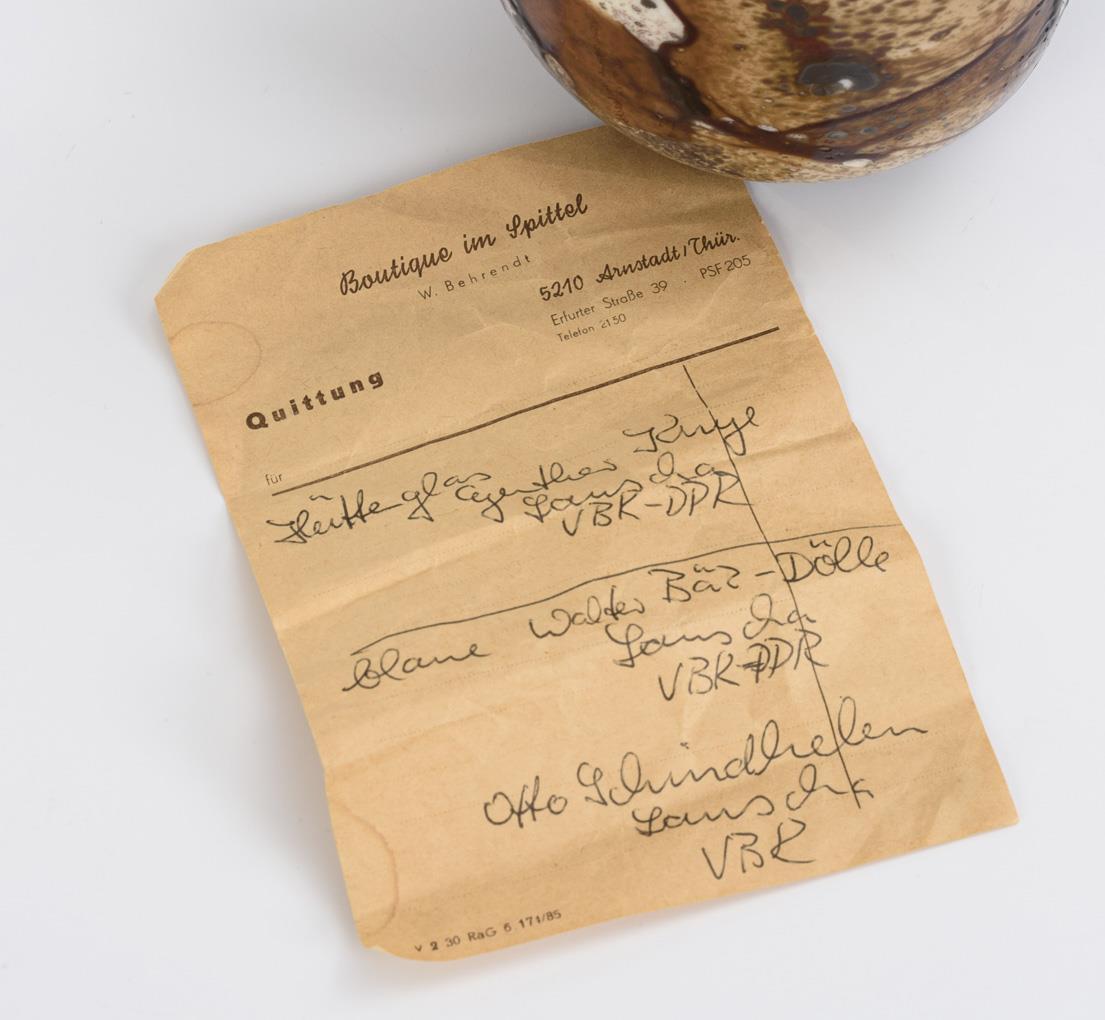 Boutique im Spittel
W. Behrendt
5210 Arnstadt/Thür.
Erfurter Straße 39 . PSF 205
Telefon 2150
Quittung
für
Hüttenglas Kruje
Lauscha
VBK-DDR
blaue Walter Bäz-Dölle
Lauscha
VBK-DDR
Otto Schindhelm
Lauscha
VBK
V 2 30 RaG 6 171/85